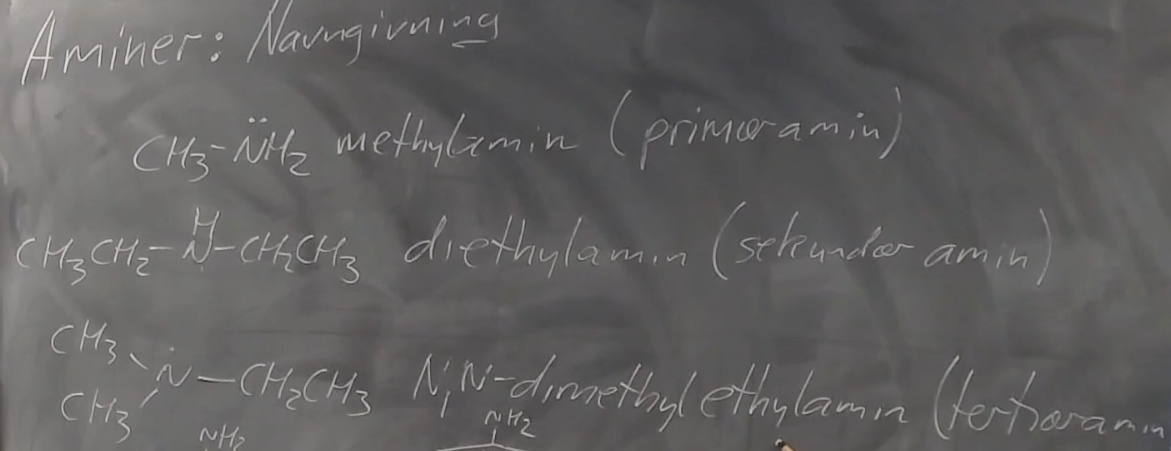 Aminer: Navngivning
CH3-N̈H2 methylamin (primær amin)
H
CH3CH2-N-CH2CH3 diethylamin (sekundær amin)
CH3
N-CH2CH3 N,N-dimethylethylamin (tertiær amin
CH3
NH2 NH2